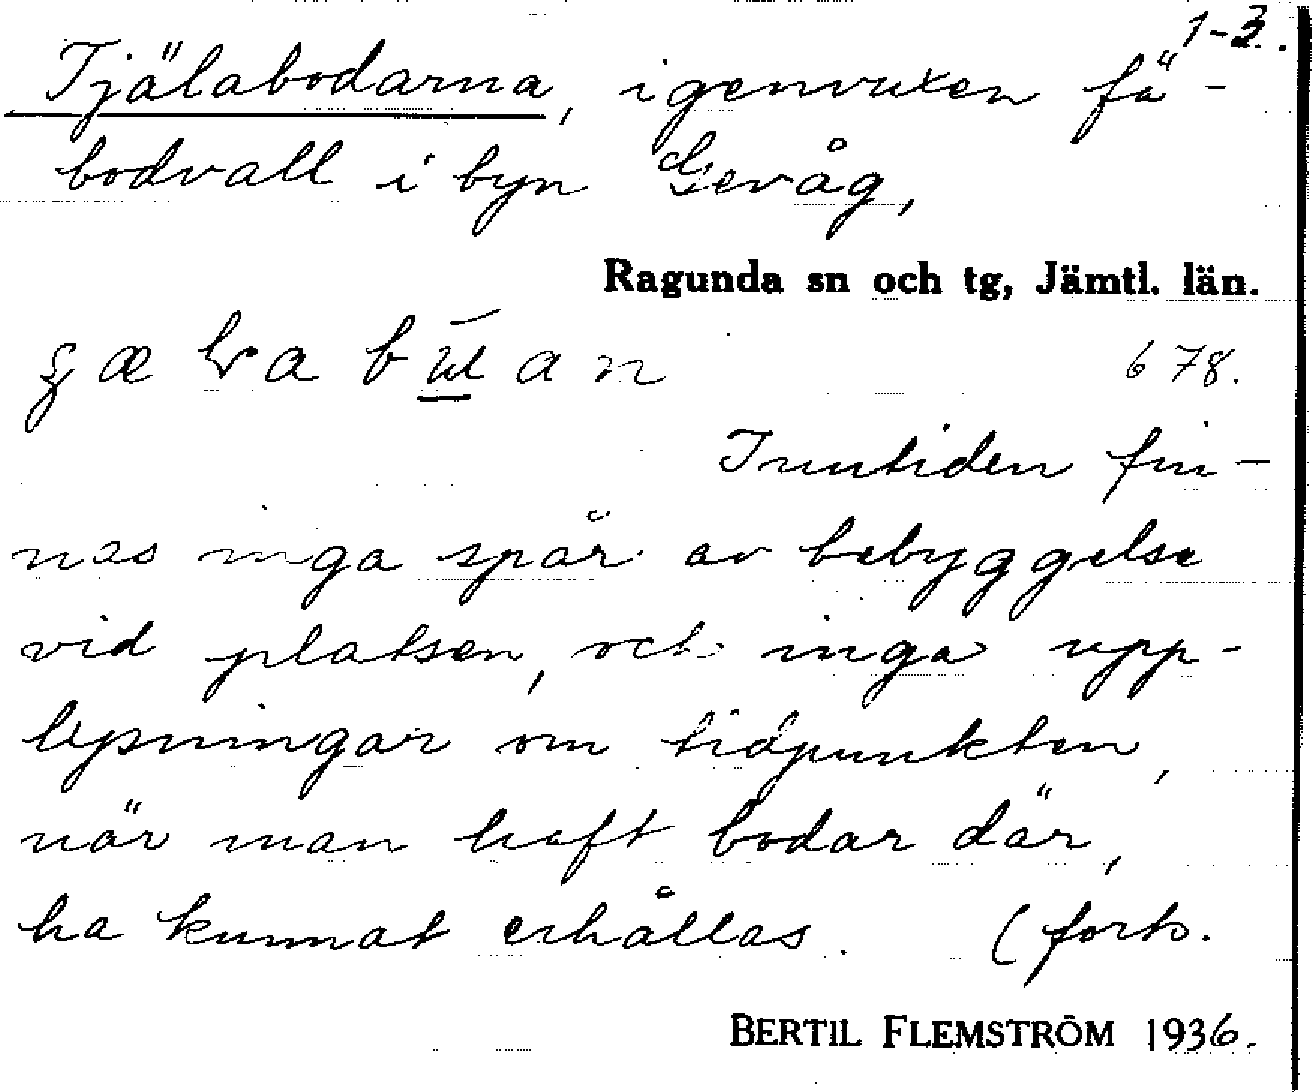 1-3.
Tjälabodarna, igenvuxen fä-
bodvall i byn Gevåg,
Ragunda sn och tg, Jämtl. län.
678.
I nutiden fin-
nas inga spår av bebyggelse
vid platsen, och inga upp-
lysningar om tidpunkten,
när man haft bodar där,
ha kunnat erhållas. (forts.
BERTIL FLEMSTRÖM 1936.